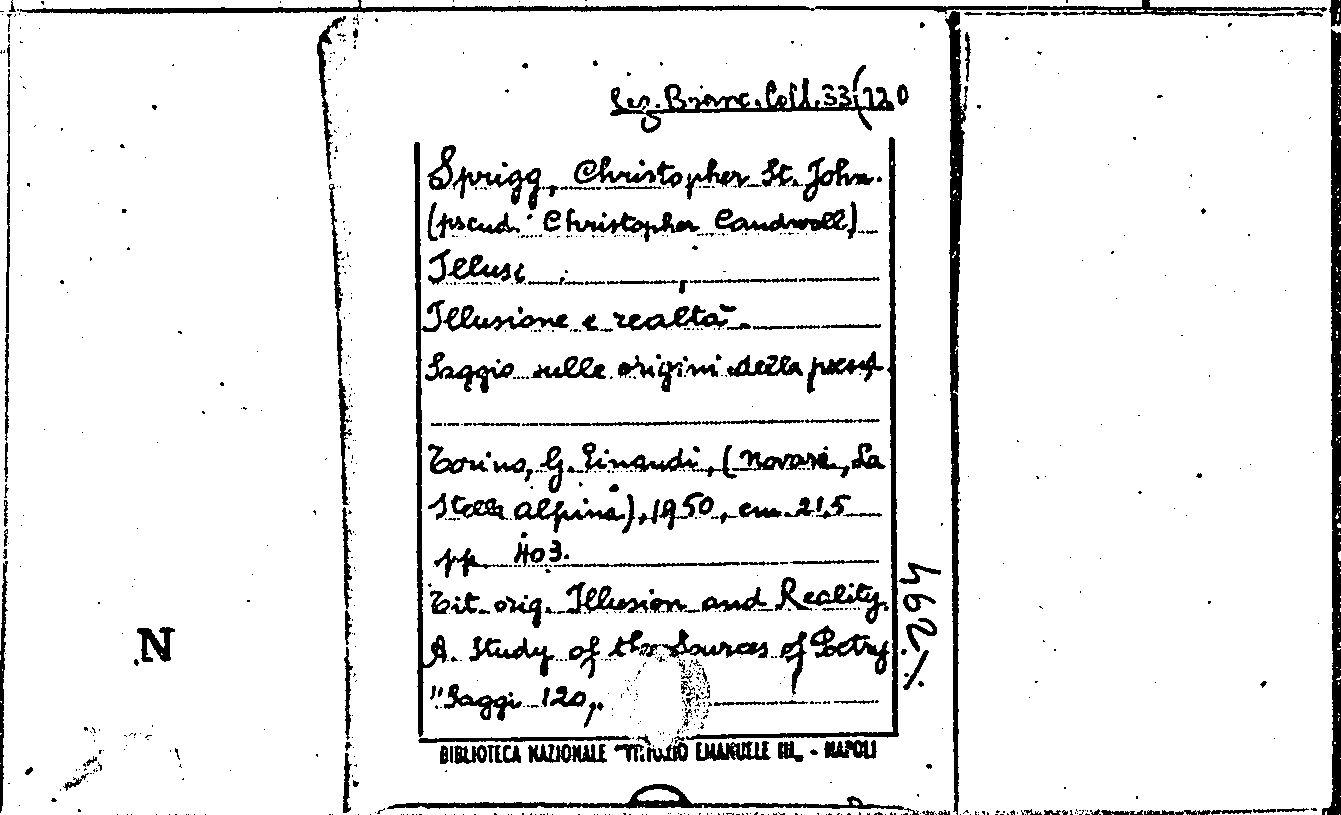 Lez. Branc. Coll. 33(120
Sprigg, Christopher St. John.
(pseud. Christopher Caudwell)
Illusi
Illusione e realtà.
Saggio sulle origini della poesia.
Torino, G. Einaudi, (Novara, La
Stella alpina), 1950, cm. 21,5
pp. 403.
Tit. orig. Illusion and Reality.
A. Study of the Sources of Poetry
"Saggi 120„.
BIBLIOTECA NAZIONALE "VITTORIO EMANUELE III„ - NAPOLI
N